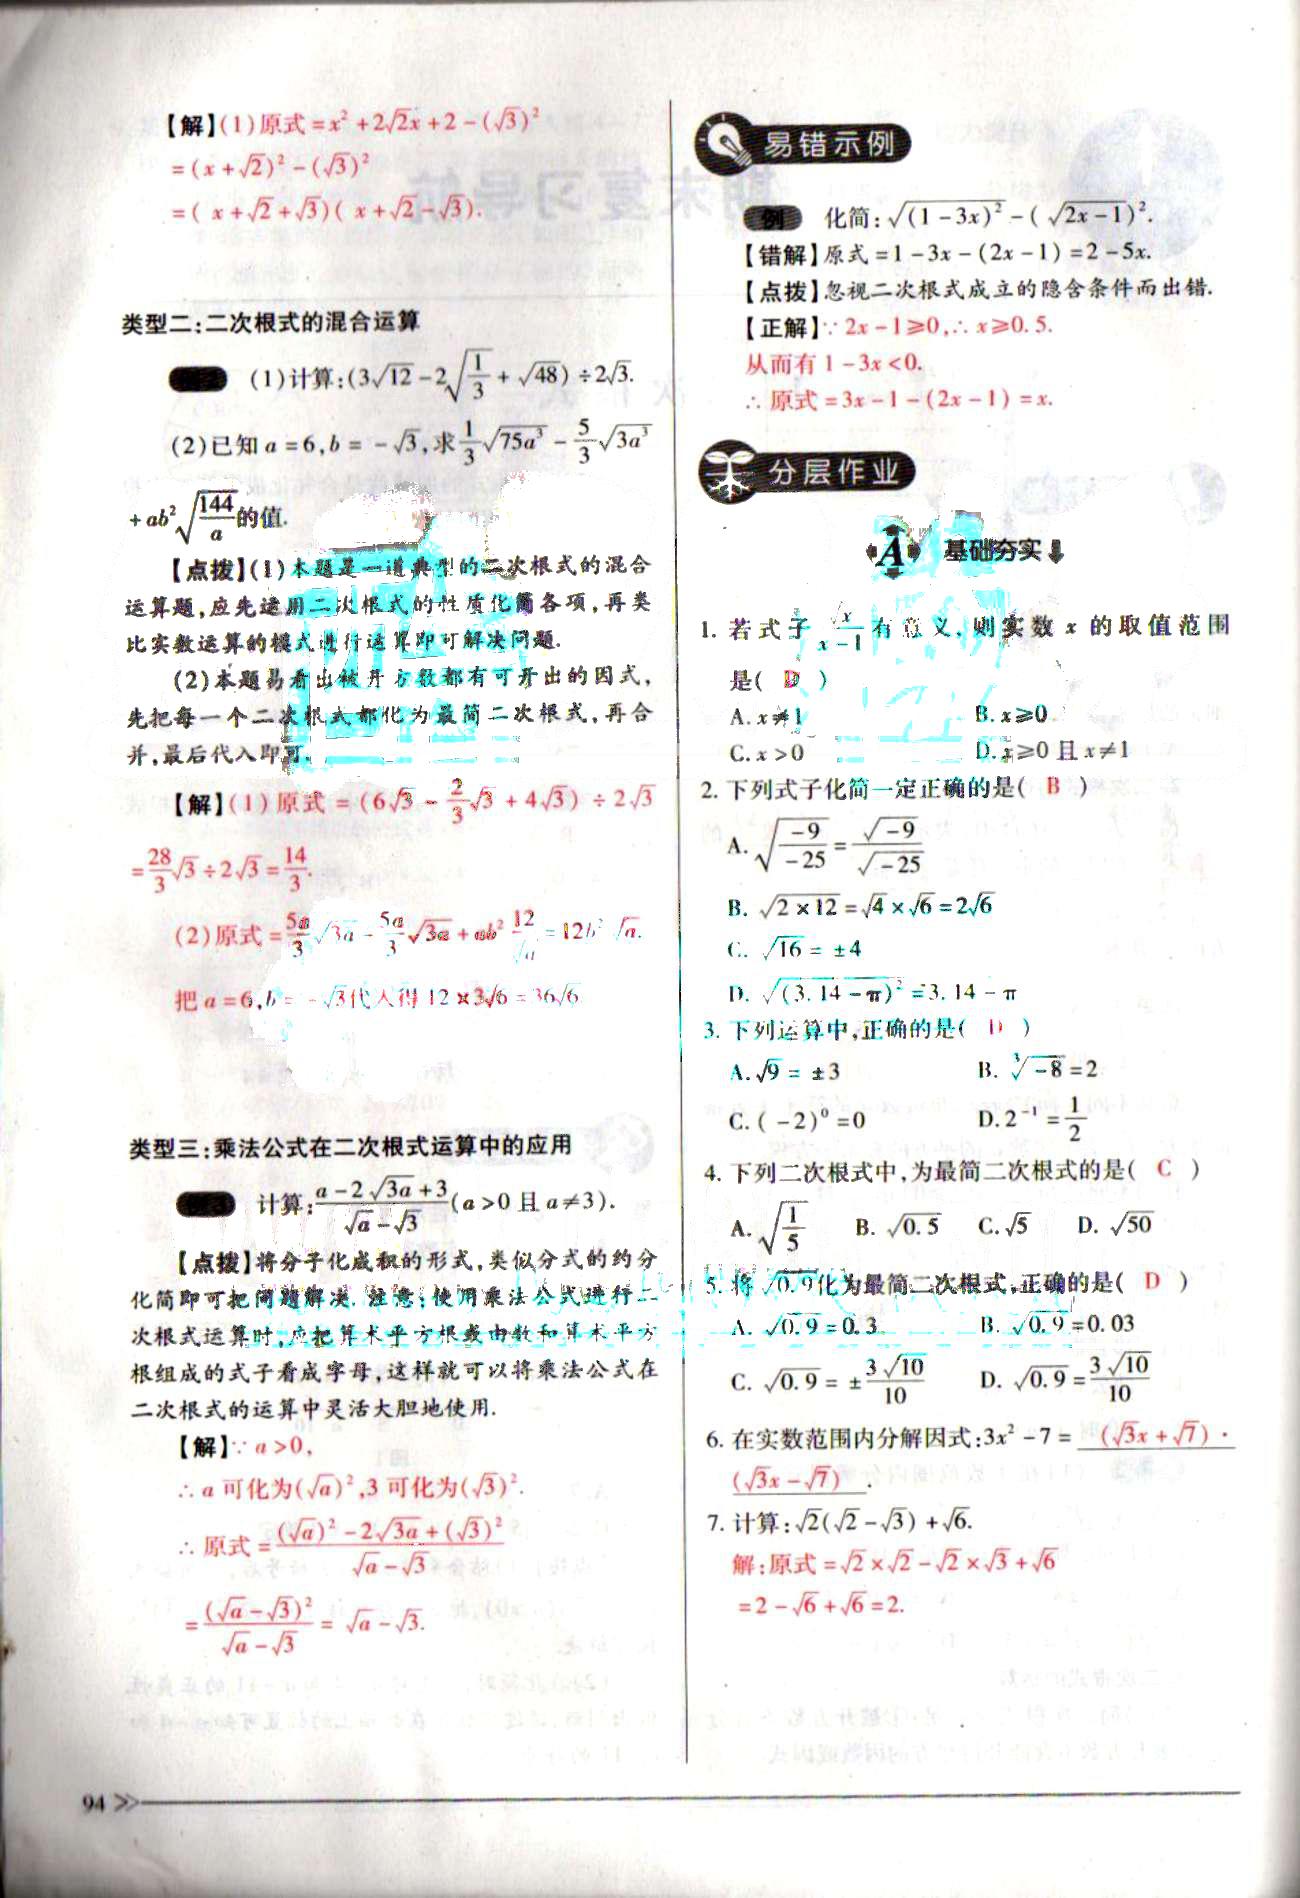 【解】(1)原式=x²+2√2x+2-(√3)²
=(x+√2)²-(√3)²
=(x+√2+√3)(x+√2-√3).
类型二:二次根式的混合运算
(1)计算:(3√12-2√(1/3)+√48)÷2√3.
(2)已知a=6,b=-√3,求1/3√(75a³)-5/3√(3a³)
+ab²√(144/a)的值.
【点拨】(1)本题是一道典型的二次根式的混合
运算题,应先运用二次根式的性质化简各项,再类
比实数运算的模式进行运算即可解决问题.
(2)本题易看出被开方数都有可开出的因式,
先把每一个二次根式都化为最简二次根式,再合
并,最后代入即可.
【解】(1)原式=(6√3-2/3√3+4√3)÷2√3
=28/3√3÷2√3=14/3.
(2)原式=5a/3√(3a)-5a/3√(3a)+ab²12/√a=12b²√a.
把a=6,b=-√3代入得12×3√6=36√6
类型三:乘法公式在二次根式运算中的应用
计算:(a-2√(3a)+3)/(√a-√3)(a>0且a≠3).
【点拨】将分子化成积的形式,类似分式的约分
化简即可把问题解决.注意:使用乘法公式进行二
次根式运算时,应把算术平方根或由数和算术平方
根组成的式子看成字母,这样就可以将乘法公式在
二次根式的运算中灵活大胆地使用.
【解】∵a>0,
∴a可化为(√a)²,3可化为(√3)².
∴原式=((√a)²-2√(3a)+(√3)²)/(√a-√3)
=(√a-√3)²/(√a-√3)=√a-√3.
94
易错示例
例 化简:√((1-3x)²)-(√(2x-1))².
【错解】原式=1-3x-(2x-1)=2-5x.
【点拨】忽视二次根式成立的隐含条件而出错.
【正解】∵2x-1≥0,∴x≥0.5.
从而有1-3x<0.
∴原式=3x-1-(2x-1)=x.
分层作业
A 基础夯实
1. 若式子√x/(x-1)有意义,则实数x的取值范围
是( D )
A.x≠1 B.x≥0
C.x>0 D.x≥0且x≠1
2. 下列式子化简一定正确的是( B )
A. √(-9/-25)=√-9/√-25
B. √(2×12)=√4×√6=2√6
C. √16=±4
D. √((3.14-π)²)=3.14-π
3. 下列运算中,正确的是( D )
A.√9=±3 B. ³√-8=2
C.(-2)⁰=0 D.2⁻¹=1/2
4. 下列二次根式中,为最简二次根式的是( C )
A. √(1/5) B. √0.5 C.√5 D. √50
5. 将√0.9化为最简二次根式,正确的是( D )
A. √0.9=0.3 B. √0.9=0.03
C. √0.9=±3√10/10 D. √0.9=3√10/10
6. 在实数范围内分解因式:3x²-7=(√3x+√7)·
(√3x-√7).
7. 计算:√2(√2-√3)+√6.
解:原式=√2×√2-√2×√3+√6
=2-√6+√6=2.